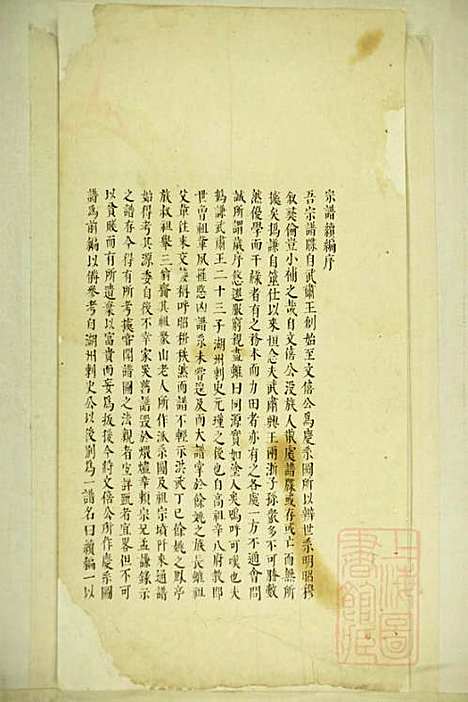 宗譜續編序
吾宗譜牒自武肅王創始至文僖公為慶系圖所以辨世系明昭穆
敘彝倫豈小補之哉自文僖公沒族人散處譜牒或存或亡而無所
據矣揭謙自筮仕以來恒念夫武肅親王兩浙子孫衆多不可勝數
然優學而干祿者有之務本而力田者亦有之各處一方不通會問
誠所謂歲序悠遠服窮親盡雖曰同源實如塗人矣嗚呼可嘆也夫
鶴謙武肅王二十三子湖州刺史元璙之後也自高祖辛八府教即
世曾祖輩夙罹愍凶譜系未嘗造及而大譜掌於餘姚之族長雖祖
父輩往來交接稱呼昭穆秩然而譜不輕示洪武丁巳餘姚之鳳亭
族叔祖舉三翁齎其祖泉山老人所作派系圖及祖宗墳阡來通譜
始得考其源委自後不幸家災舊譜毀於煨燼幸賴宗兄孟謙錄示
之譜春今得有所考據當閱譜圖之法親者宜詳疎者宜畧但不可
以貧賤而有所遺棄以富貴而妄為扳援今將文僖公所作慶系圖
譜為前編以備參考自湖州刺史公以後别為一譜名曰續編一以
上海圖書館藏